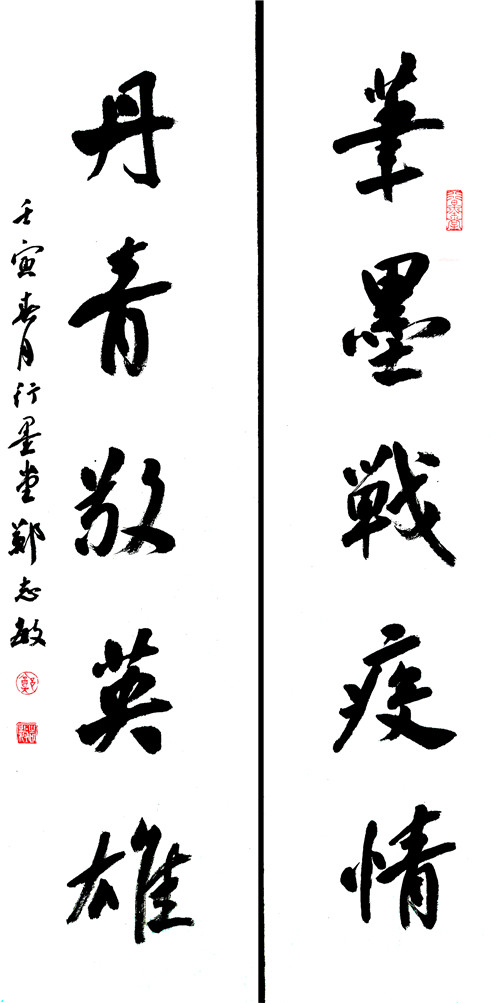 筆墨戰疫情
丹青敬英雄
壬寅春月行墨堂鄭志敏